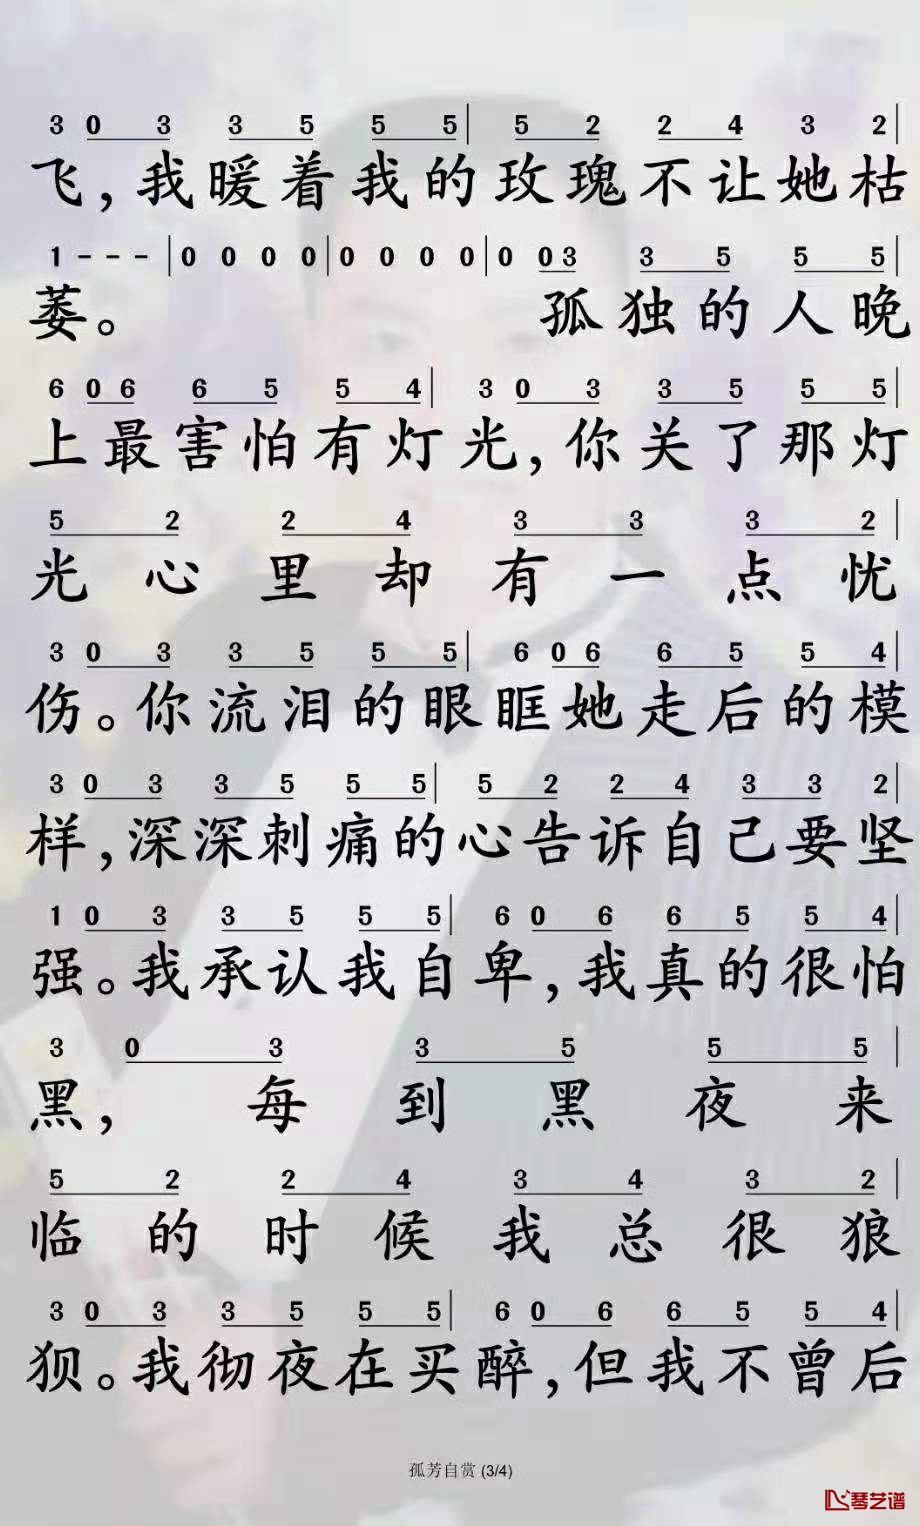 3 0 3 3 5 5 5 | 5 2 2 4 3 2 |
飞,我暖着我的玫瑰不让她枯
1 - - - | 0 0 0 0 | 0 0 0 0 | 0 0 3 3 5 5 5 |
萎。 孤独的人晚
6 0 6 6 5 5 4 | 3 0 3 3 5 5 5 |
上最害怕有灯光,你关了那灯
5 2 2 4 3 3 3 2 |
光心里却有一点忧
3 0 3 3 5 5 5 | 6 0 6 6 5 5 4 |
伤。你流泪的眼眶她走后的模
3 0 3 3 5 5 5 | 5 2 2 4 3 3 2 |
样,深深刺痛的心告诉自己要坚
1 0 3 3 5 5 5 | 6 0 6 6 5 5 4 |
强。我承认我自卑,我真的很怕
3 0 3 3 5 5 5 |
黑,每到黑夜来
5 2 2 4 3 4 3 2 |
临的时候我总很狼
3 0 3 3 5 5 5 | 6 0 6 6 5 5 4 |
狈。我彻夜在买醉,但我不曾后
孤芳自赏 (3/4)
琴艺谱